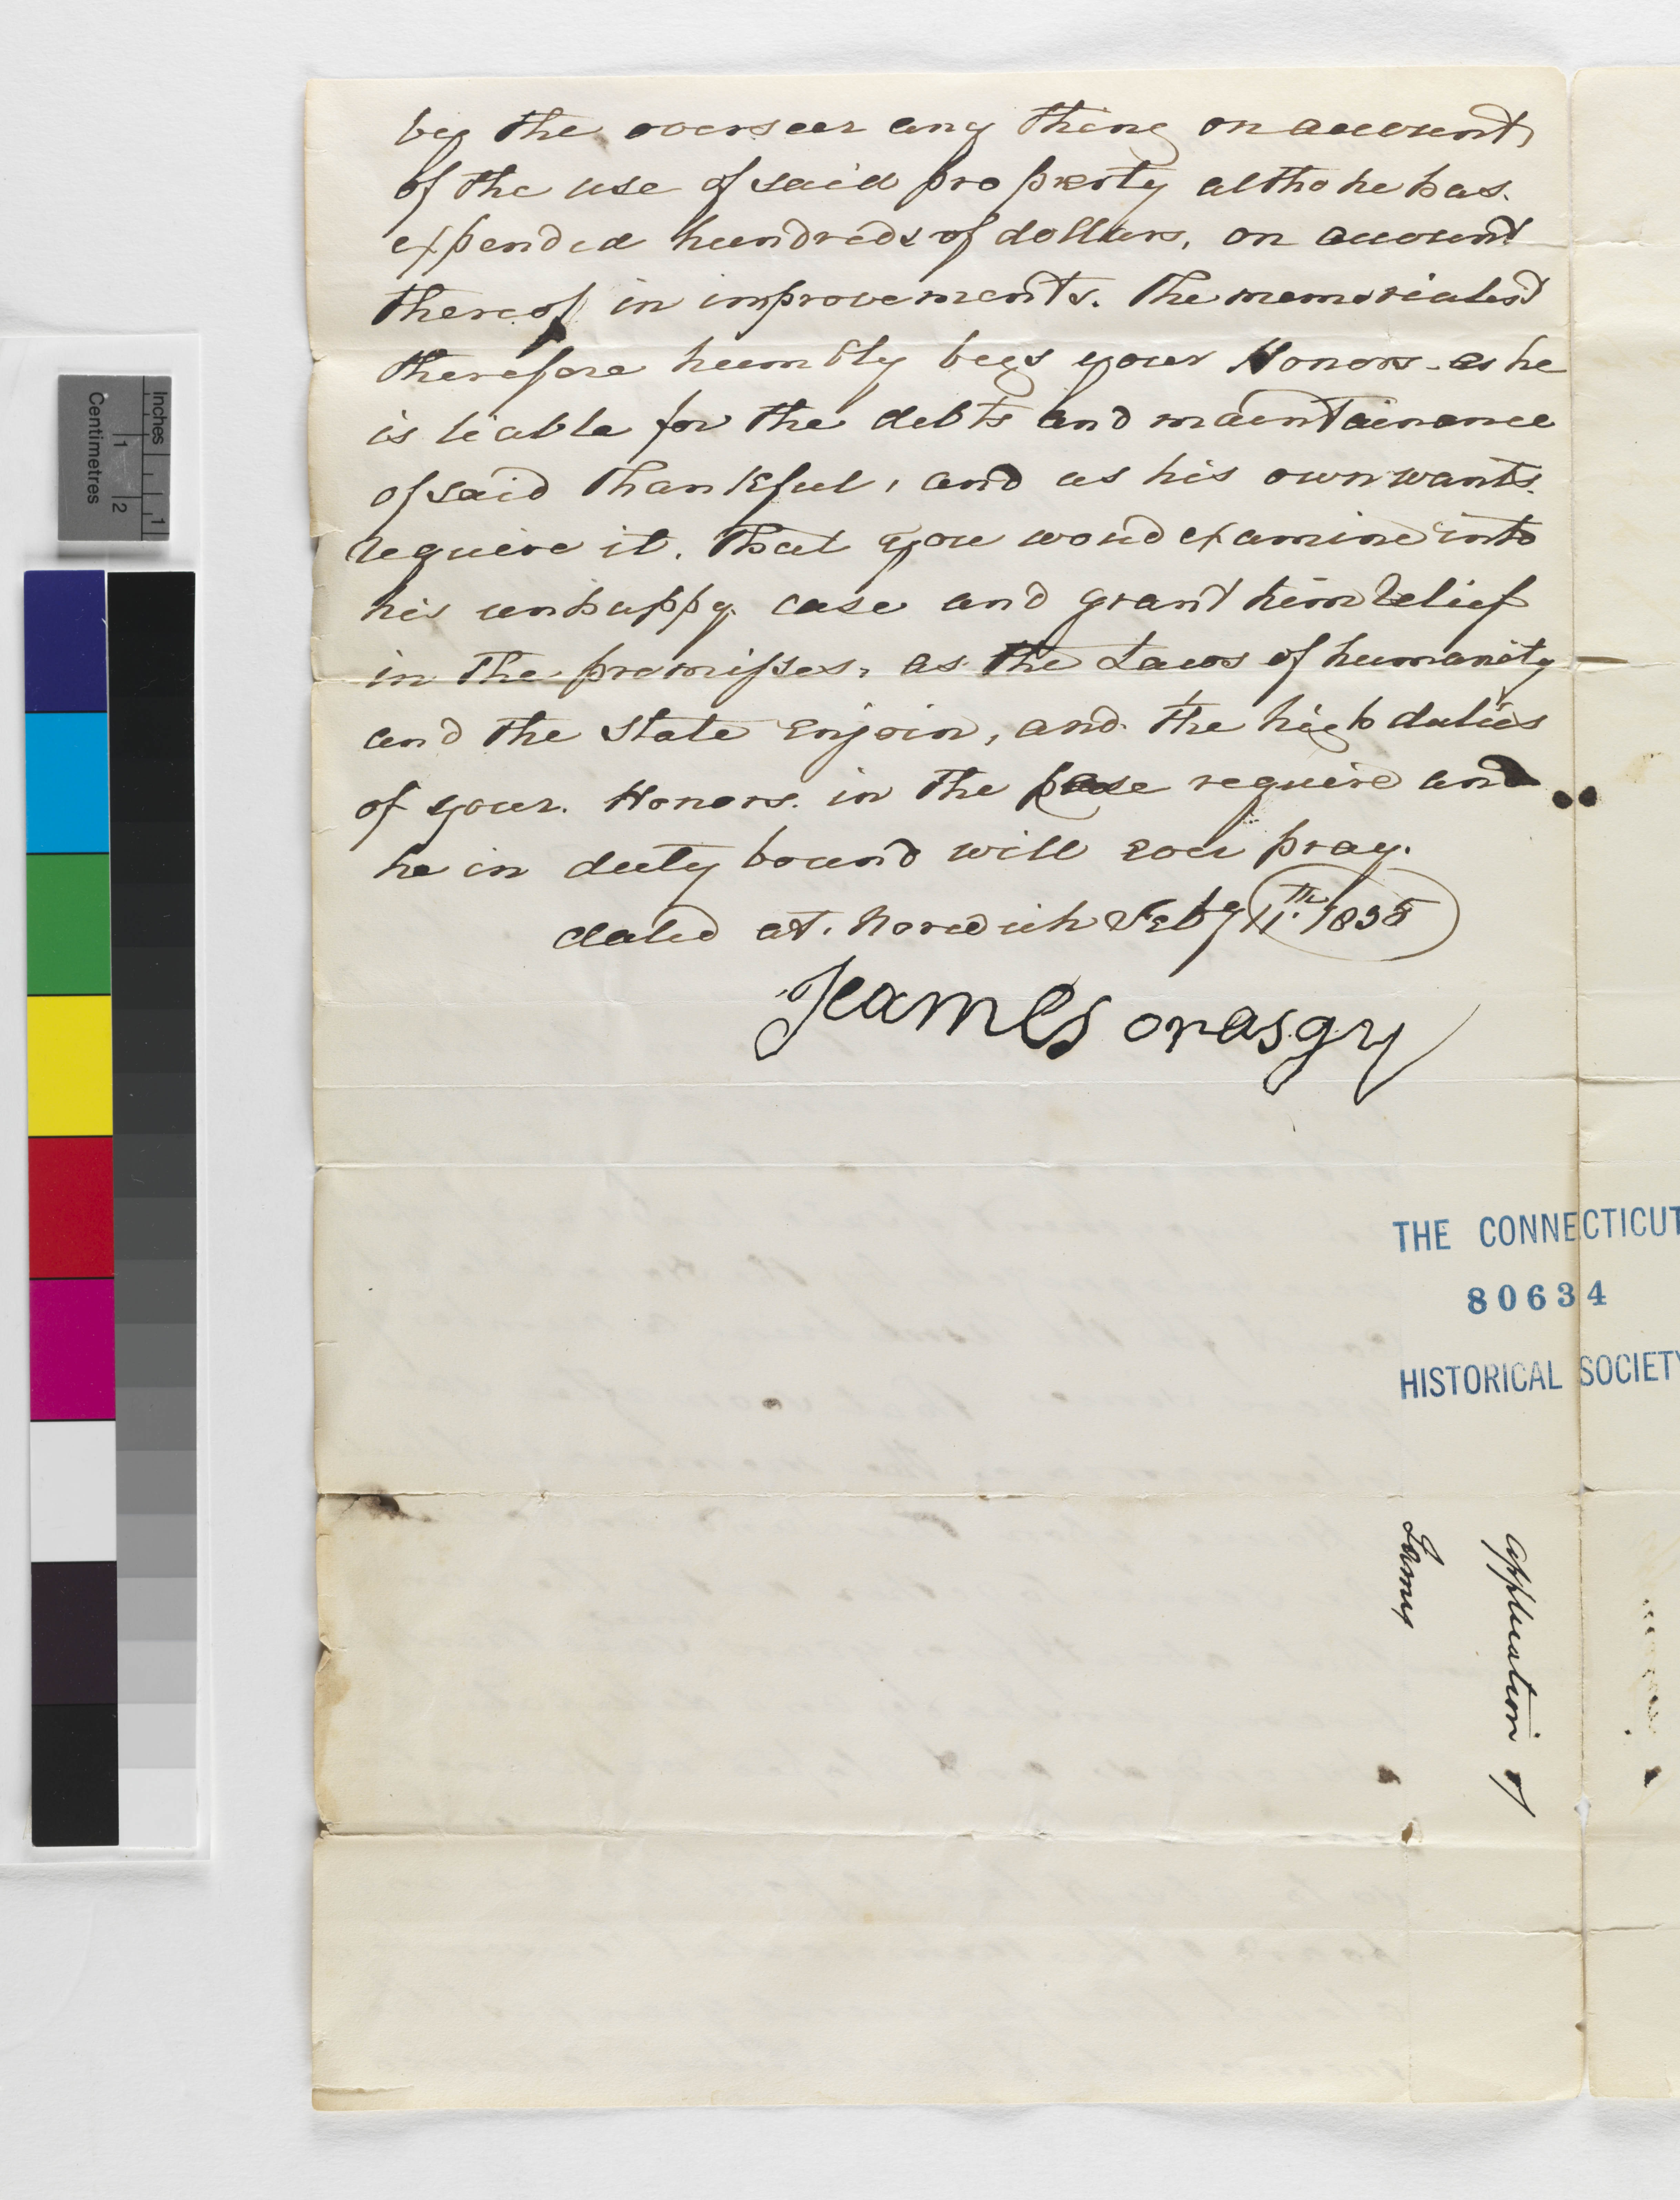 by the overseer any thing on account,
of the use of said property altho he has.
expended hundreds of dollars, on account
thereof in improvements. The memorialist
therefore humbly begs your Honors - as he
is liable for the debts and maintainance
of said Thankful, and as his own wants.
require it. That you woud examine into
his unhappy case and grant him relief
in the premisses, as the Laws of humanity
and the State Enjoin, and the high duties
of your Honors. in the case require and
he in duty bound will ever pray.
dated at. Norwich Feby 11th. 1835
Jeames orasgy
THE CONNECTICUT
80634
HISTORICAL SOCIETY
Application of
James
Inches
1
Centimetres
1
2